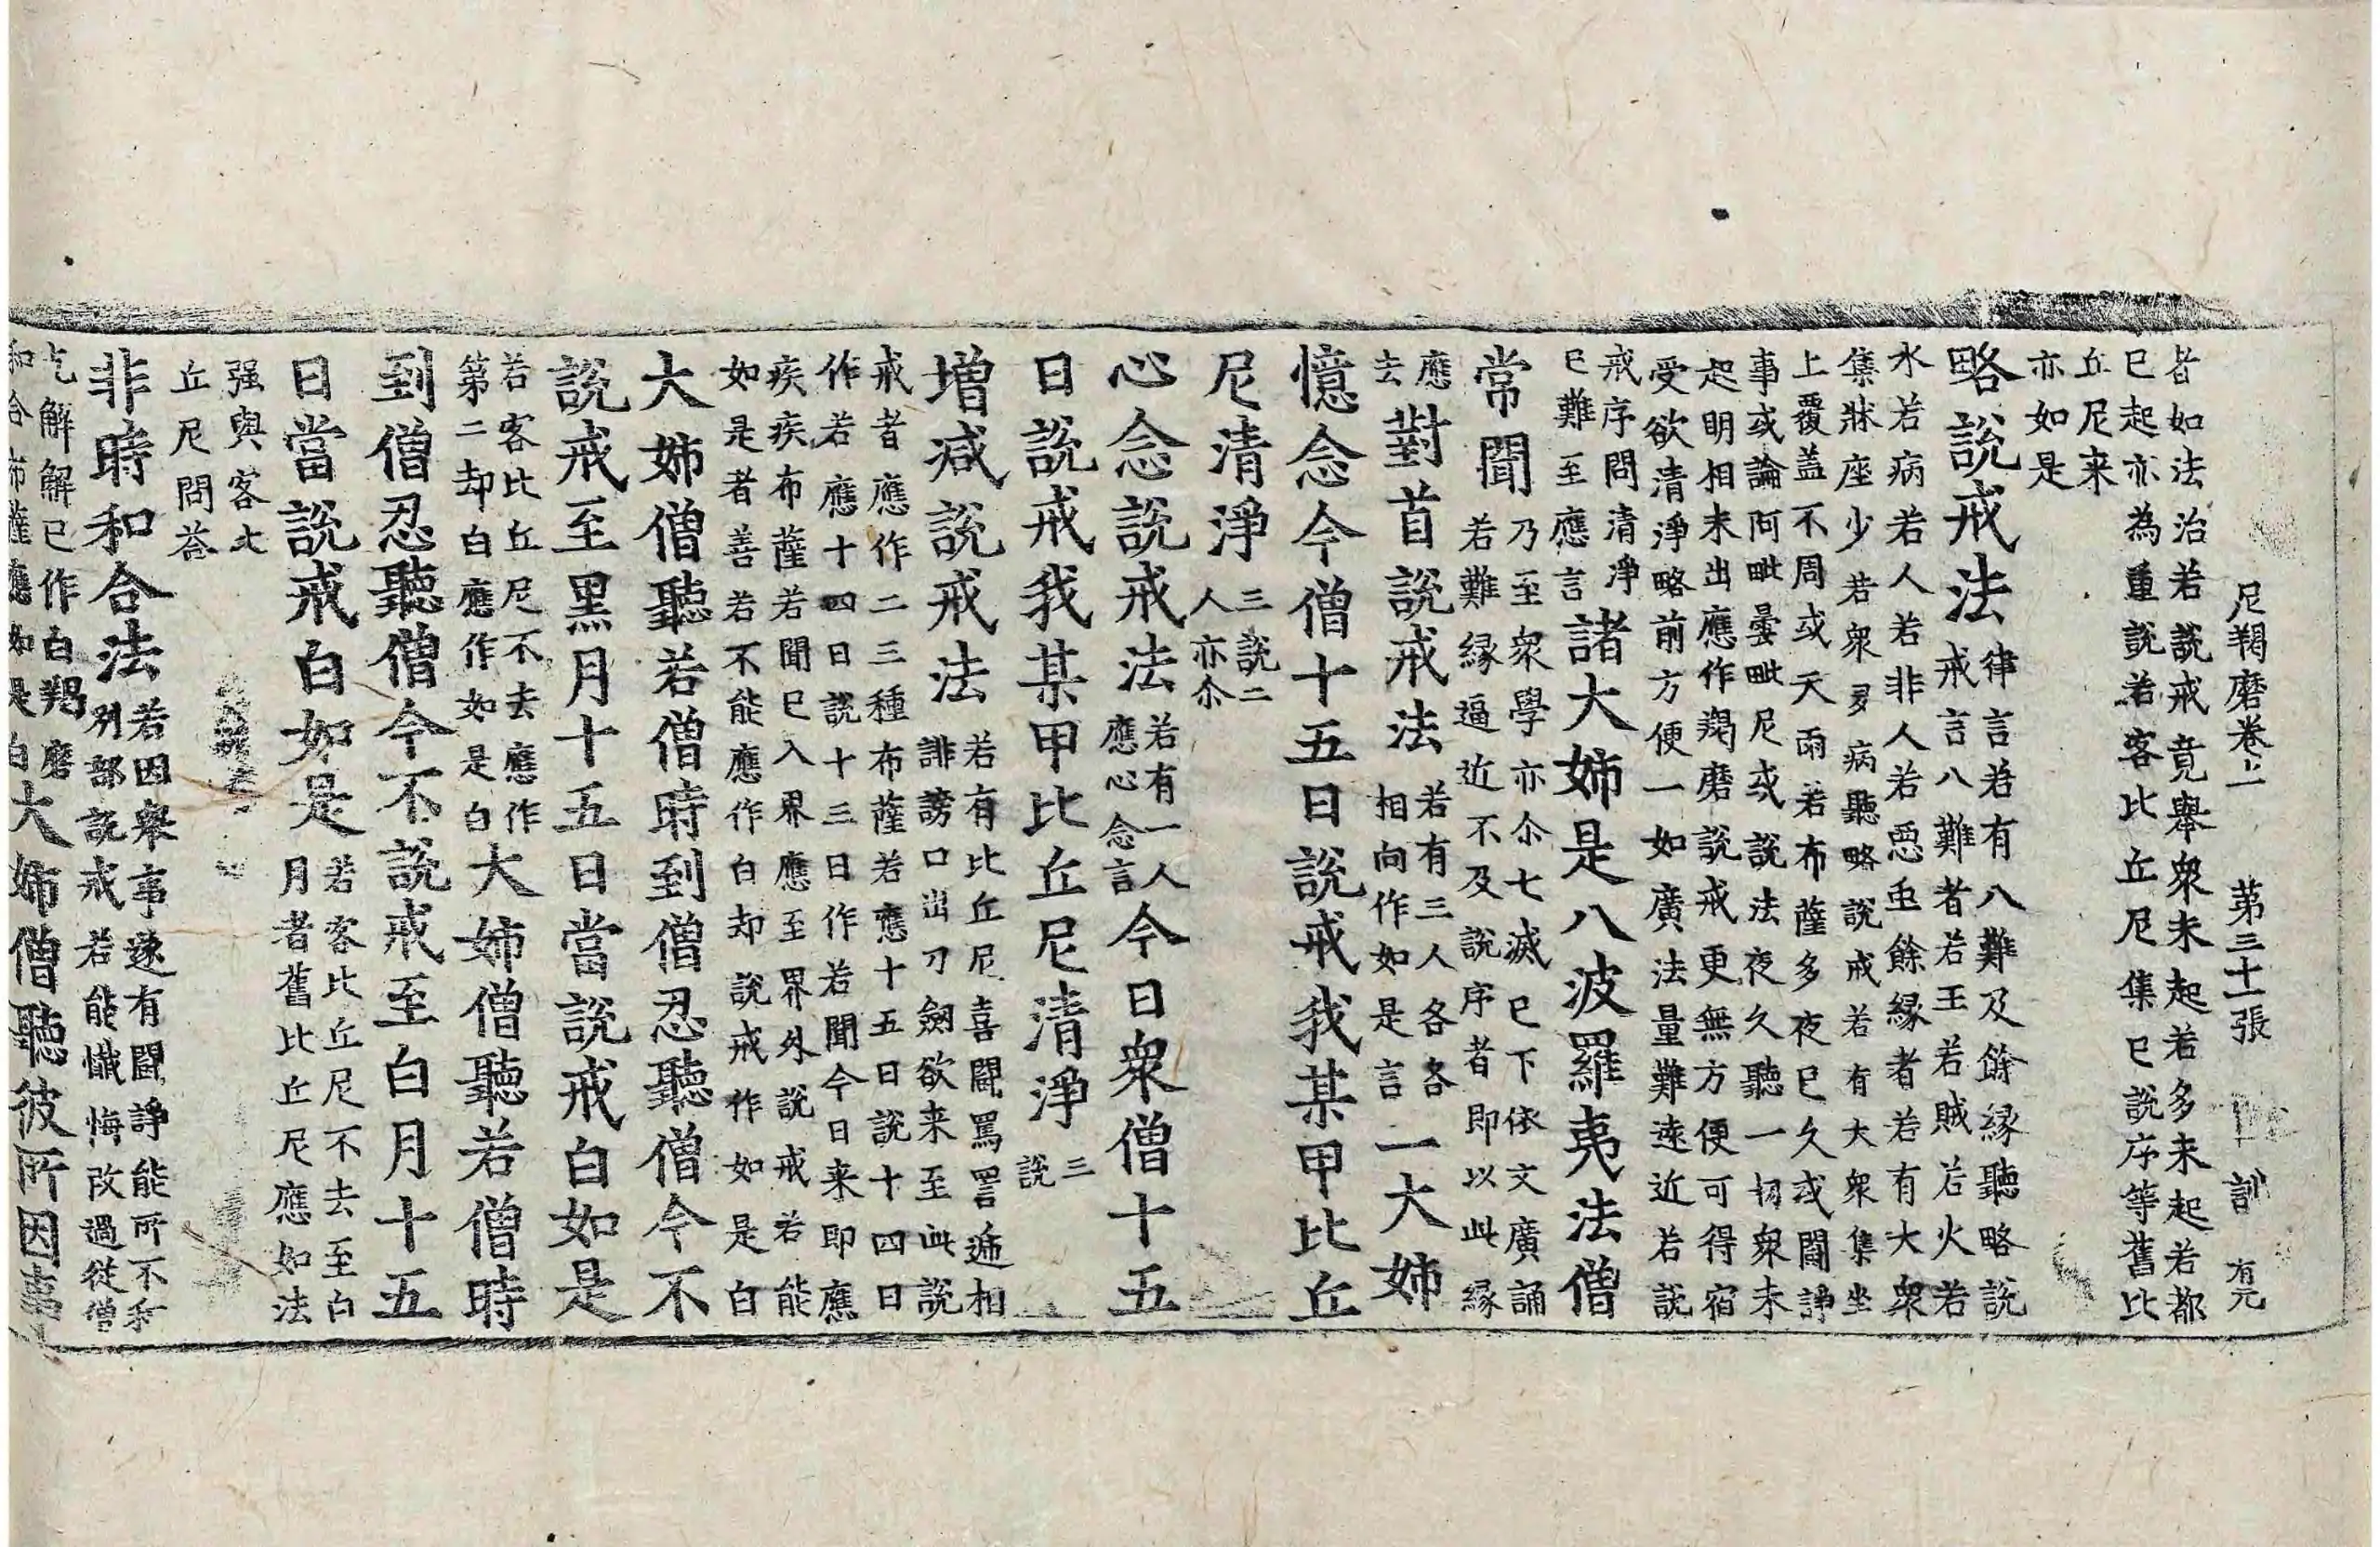 尼羯磨卷上 第三十一張 訓 有元
者如法治若說戒竟舉衆未起若多未起若都
已起亦為重說若客比丘尼集已說序等舊比
丘尼来
亦如是
略說戒法律言若有八難及餘縁聽略說
戒言八難者若王若賊若火若
水若病若人若非人若惡虫餘縁者若有大衆
集牀座少若衆多病聽略說戒若有大衆集坐
上覆盖不周或天雨若布薩多夜已久或鬪諍
事或論阿毗曇毗尼或說法夜久聽一切衆未
起明相未出應作羯磨說戒更無方便可得宿
受欲清淨略前方便一如廣法量難遠近若說
戒序問清淨
已難至應言
諸大姉是八波羅夷法僧
常聞乃至衆學亦尒七滅已下依文廣誦
若難縁逼近不及說序者即以此縁
應
去
對首說戒法若有三人各各
相向作如是言
一大姉
憶念今僧十五日說戒我某甲比丘
尼清淨三說二
人亦尒
心念說戒法若有一人
應心念言
今日衆僧十五
日說戒我某甲比丘尼清淨三
說
增减說戒法若有比丘尼喜鬪罵詈遞相
誹謗口出刀劔欲来至此說
戒者應作二三種布薩若應十五日說十四日
作若應十四日說十三日作若聞今日来即應
疾疾布薩若聞已入界應至界外說戒若能
如是者善若不能應作白却說戒作如是白
大姉僧聽若僧時到僧忍聽僧今不
說戒至黑月十五日當說戒白如是
若客比丘尼不去應作
第二却白應作如是白
大姉僧聽若僧時
到僧忍聽僧今不說戒至白月十五
日當說戒白如是若客比丘尼不去至白
月者舊比丘尼應如法
强與客
丘尼問荅
非時和合法若因舉事遂有鬪諍能所不和
別部說戒若能懺悔改過從僧
乞解解已作白羯磨
和合布薩應如是白
大姉僧聽彼所因事